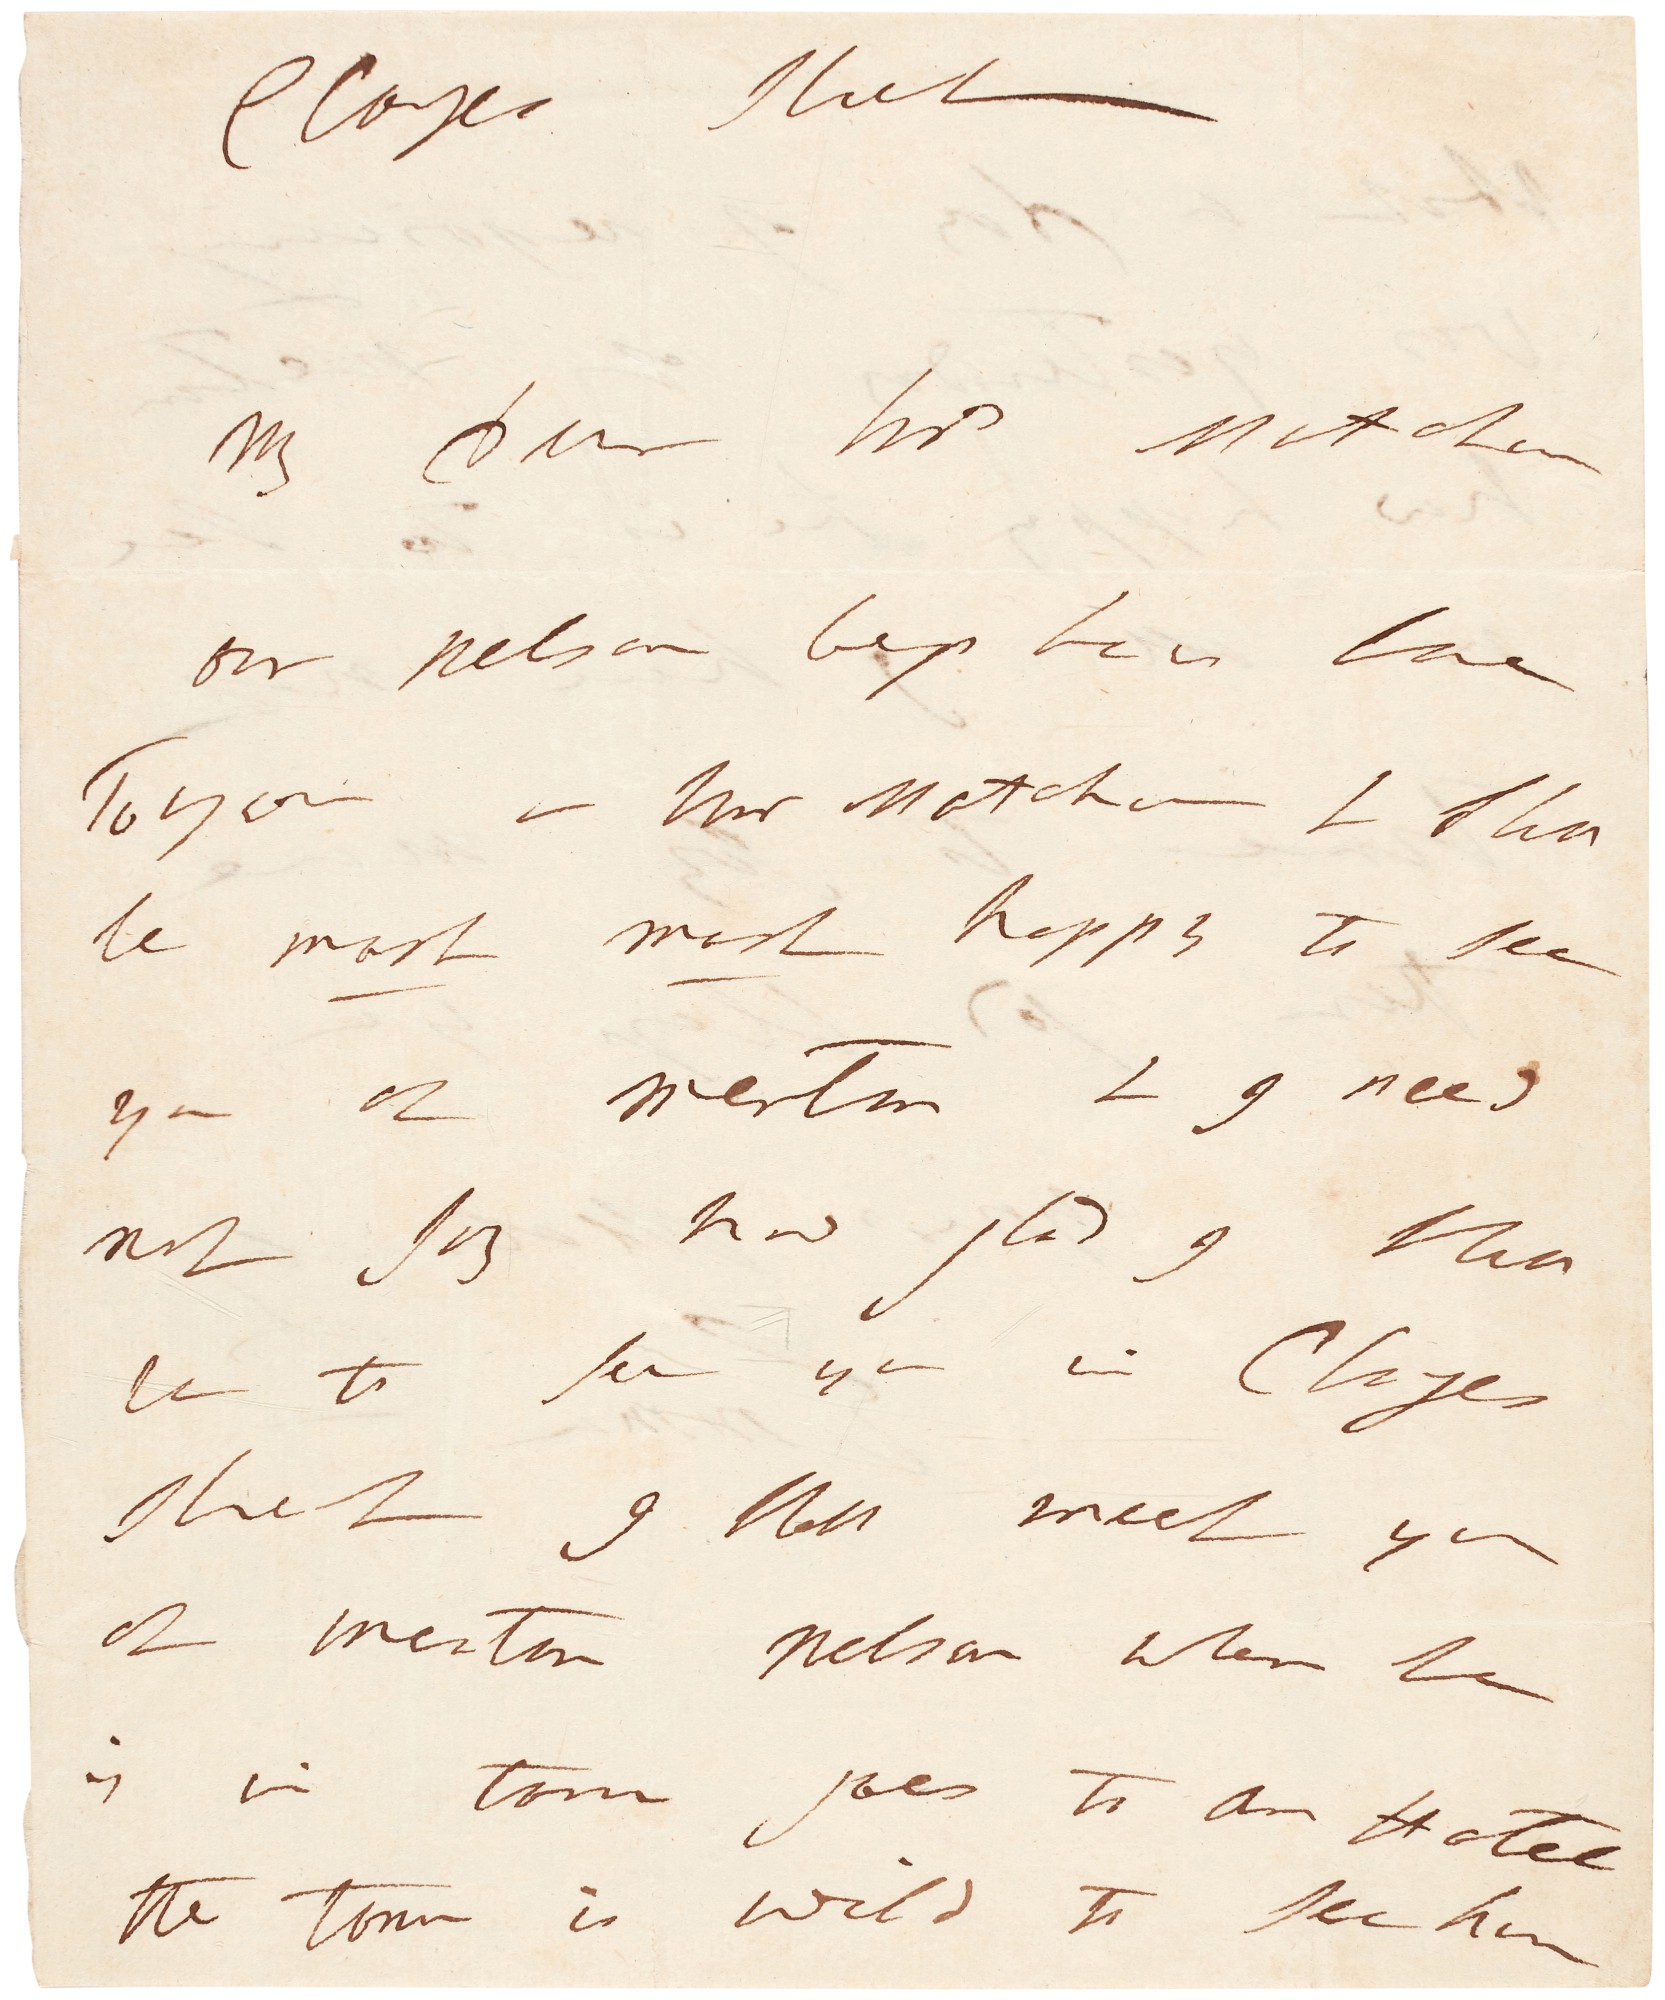 Clarges Street
My Dear Mrs Matcham
our Nelson begs his love
To you & Mr Matcham & shall
be most most happy to see
you at Merton & I need
not say how glad I shall
be to see you in Clarges
Street I shall meet you
at Merton Nelson when he
is in town goes to an Hotel
the town is wild to see him